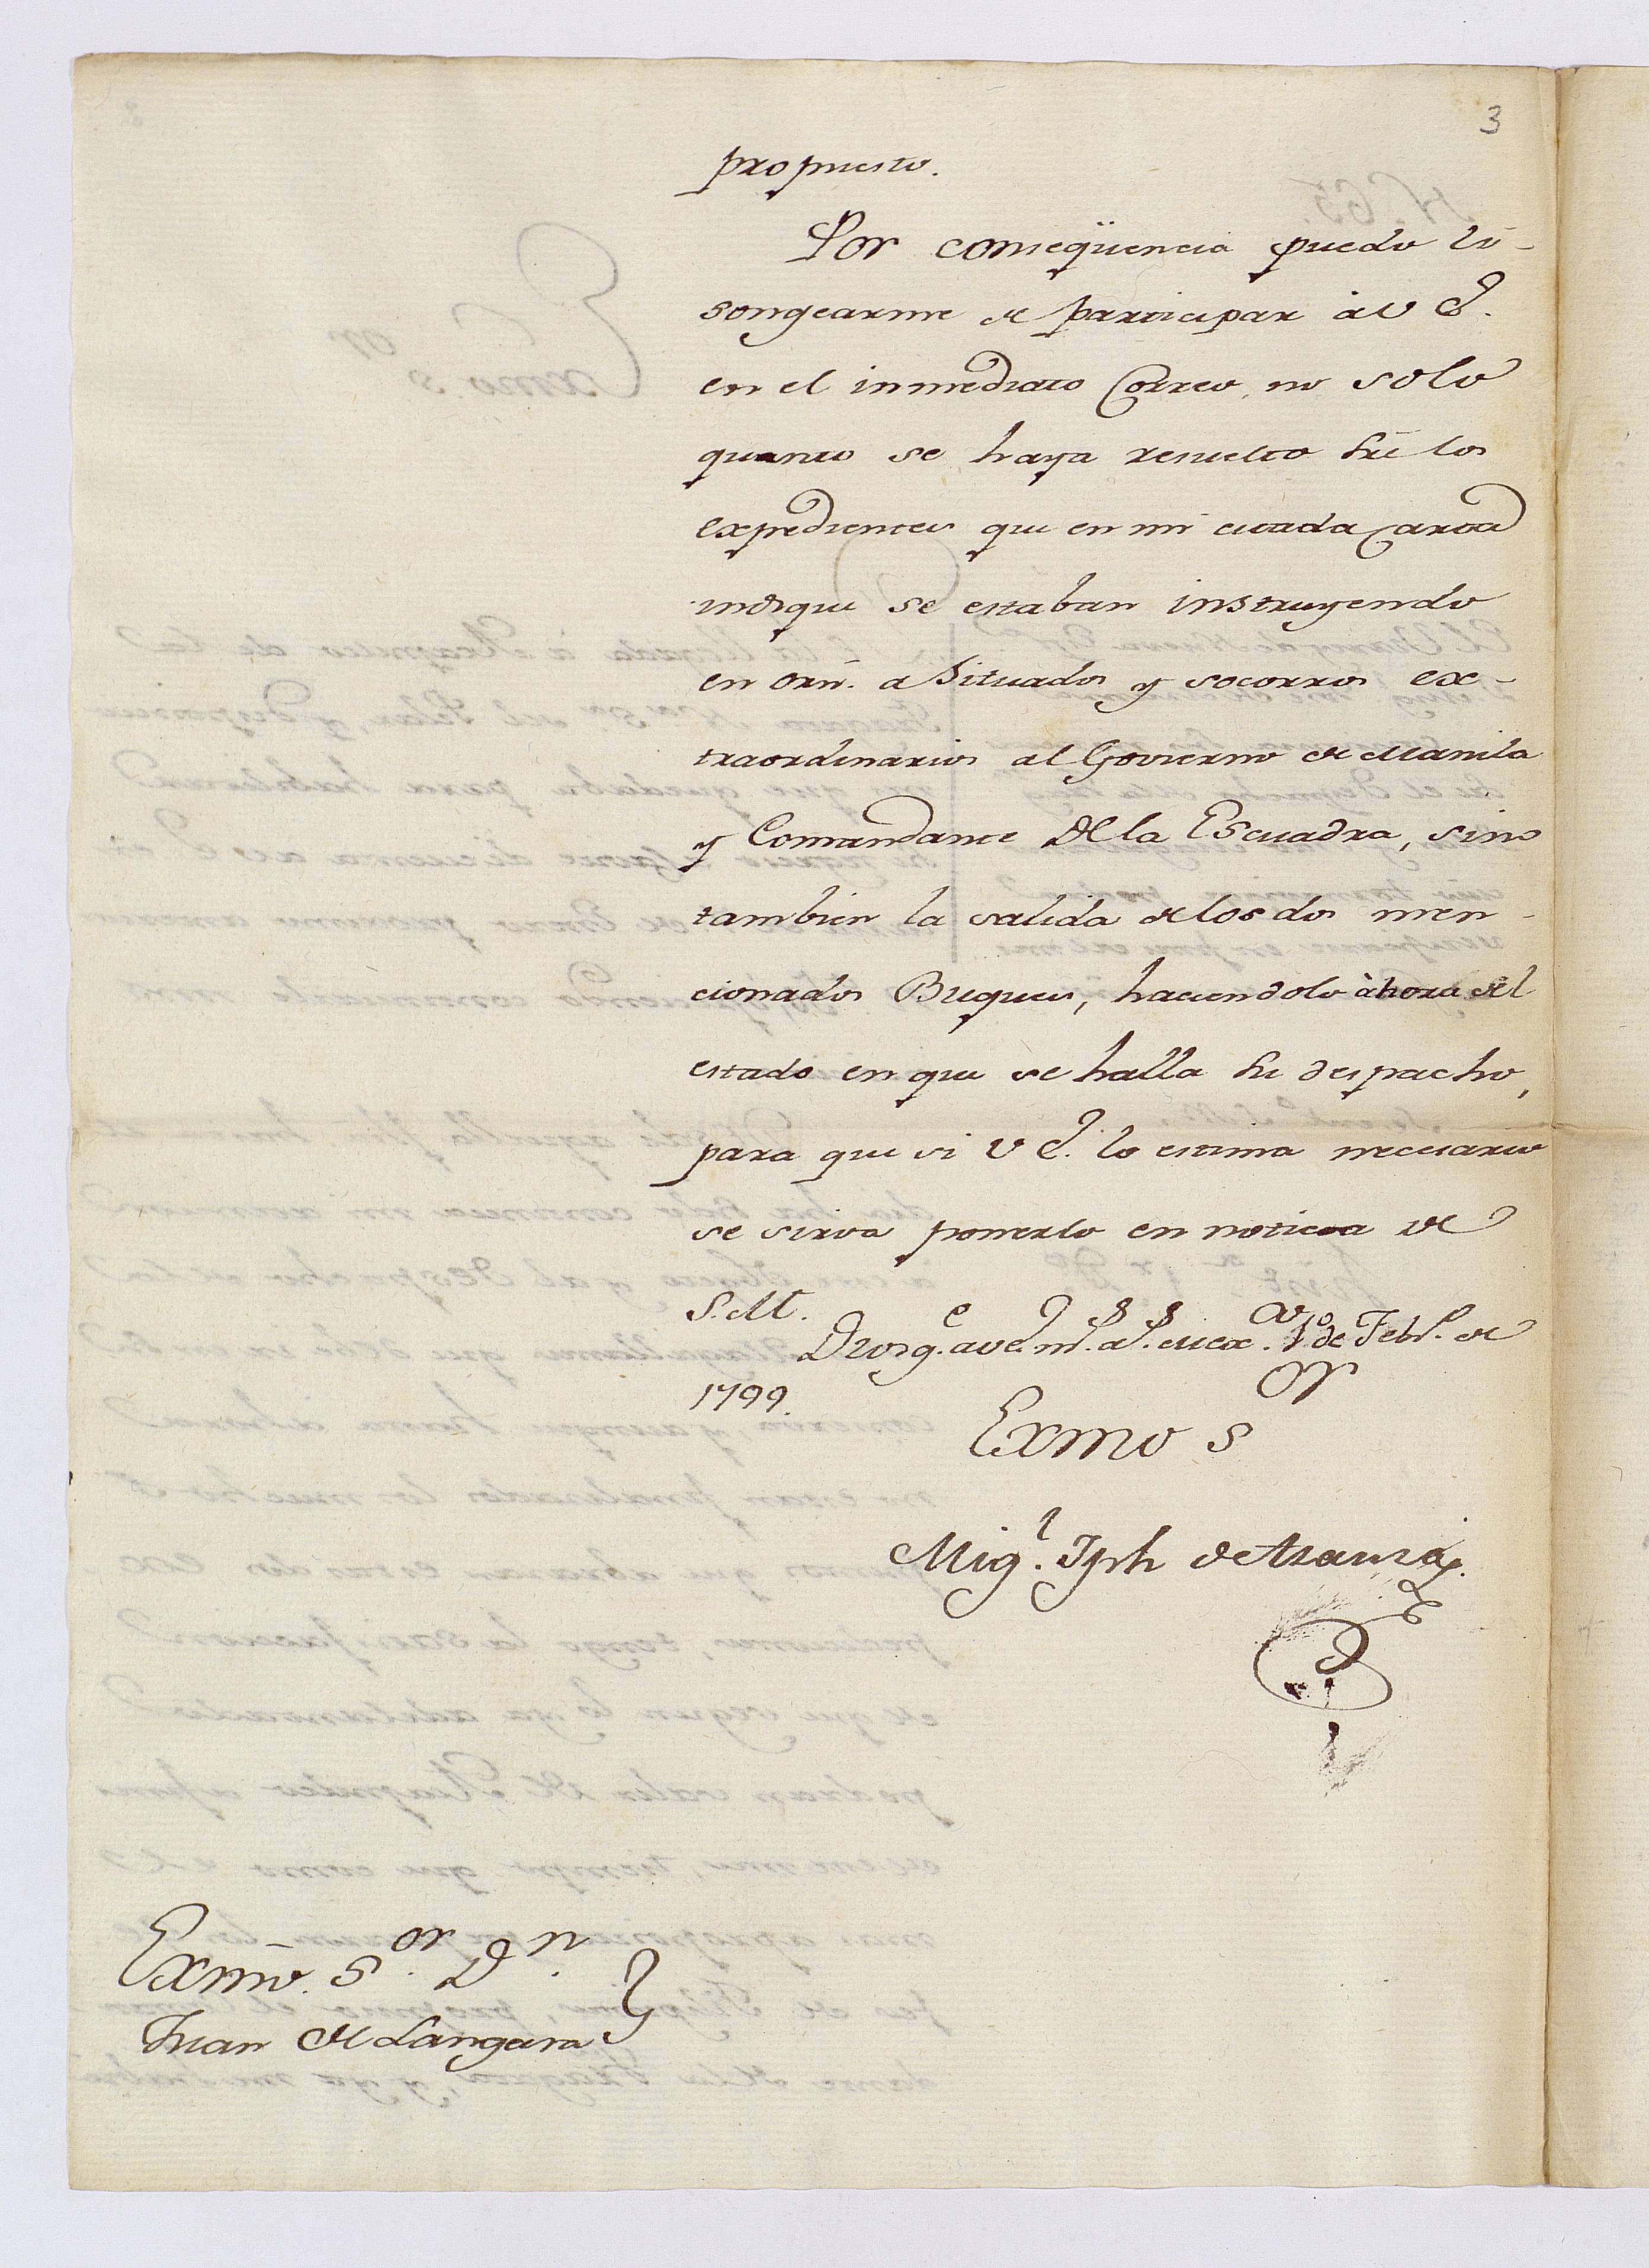 3
propuesto.
Por conseqüencia puedo li-
songearme de participar à V E.
en el inmediato Correo, no solo
quanto se haya resuelto sre los
expedientes que en mi citada Carta
indiqué se estaban instruyendo
en orñ. a Situados y socorros ex-
traordinarios al Govierno de Manila
y Comandante de la Escuadra, sino
tambien la salida de los dos men-
cionados Buques, haciendolo àhora del
estado en que se halla su despacho,
para que si V E. lo estima necesario
se sirva ponerlo en noticia de
S. M.
Dios gue. a V E. ms. as. Mexco. 1º de Febo. de
1799.
Exmo Sor
Migl. Jph de Azanza
Exmo. Sor. Dn.
Juan de Langara